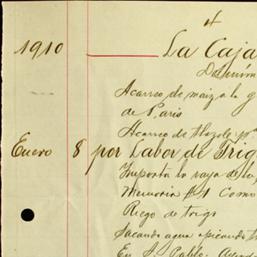 1910 La Caja
Acarreo de maiz a la g
de Paris
Acarreo de tlazole pa
Enero 8 por Labor de Trig
Importó la raya de la
Memoria #1 Como
Riego de trigo
Sacando agua
En S. Pablo.